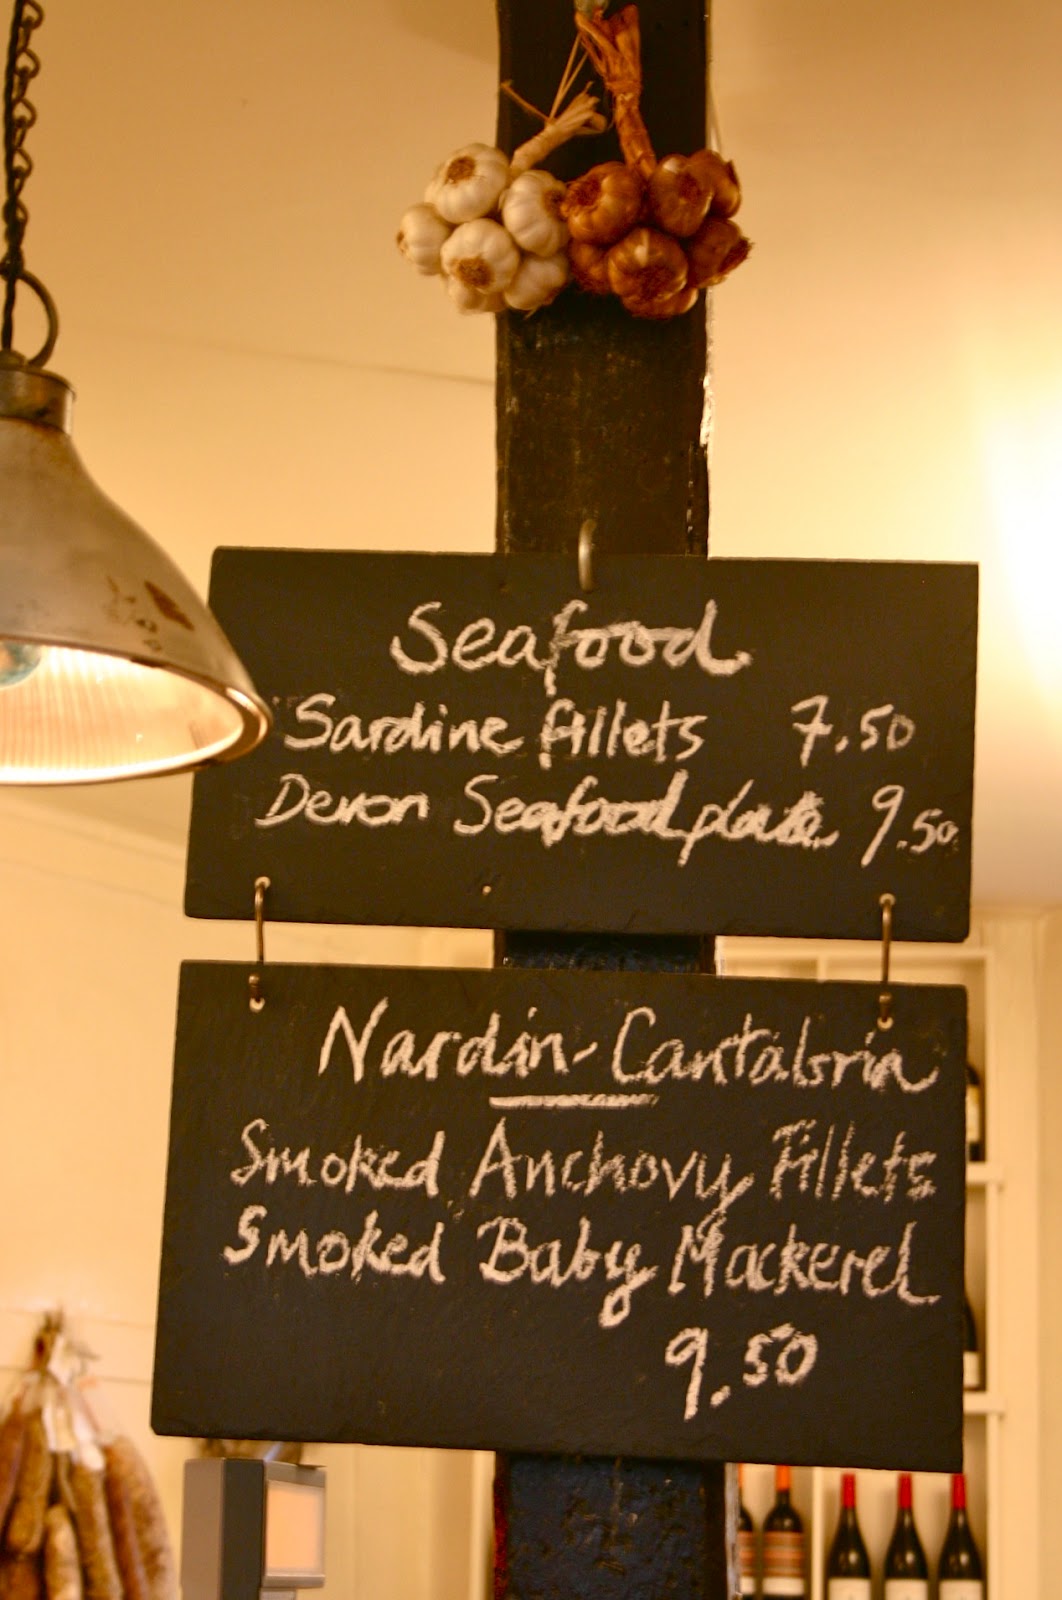 Seafood
Sardine fillets 7.50
Devon Seafood plate 9.50
Nardin-Cantabria
Smoked Anchovy Fillets
Smoked Baby Mackerel
9.50